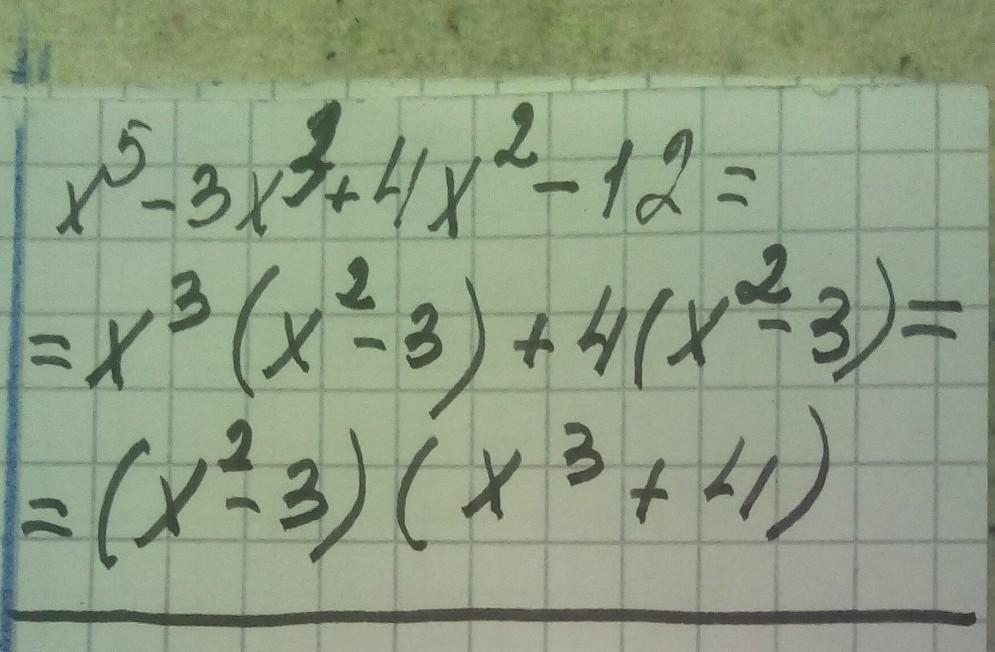 x⁵ - 3x³ + 4x² - 12 =
= x³ (x² - 3) + 4 (x² - 3) =
= (x² - 3) (x³ + 4)